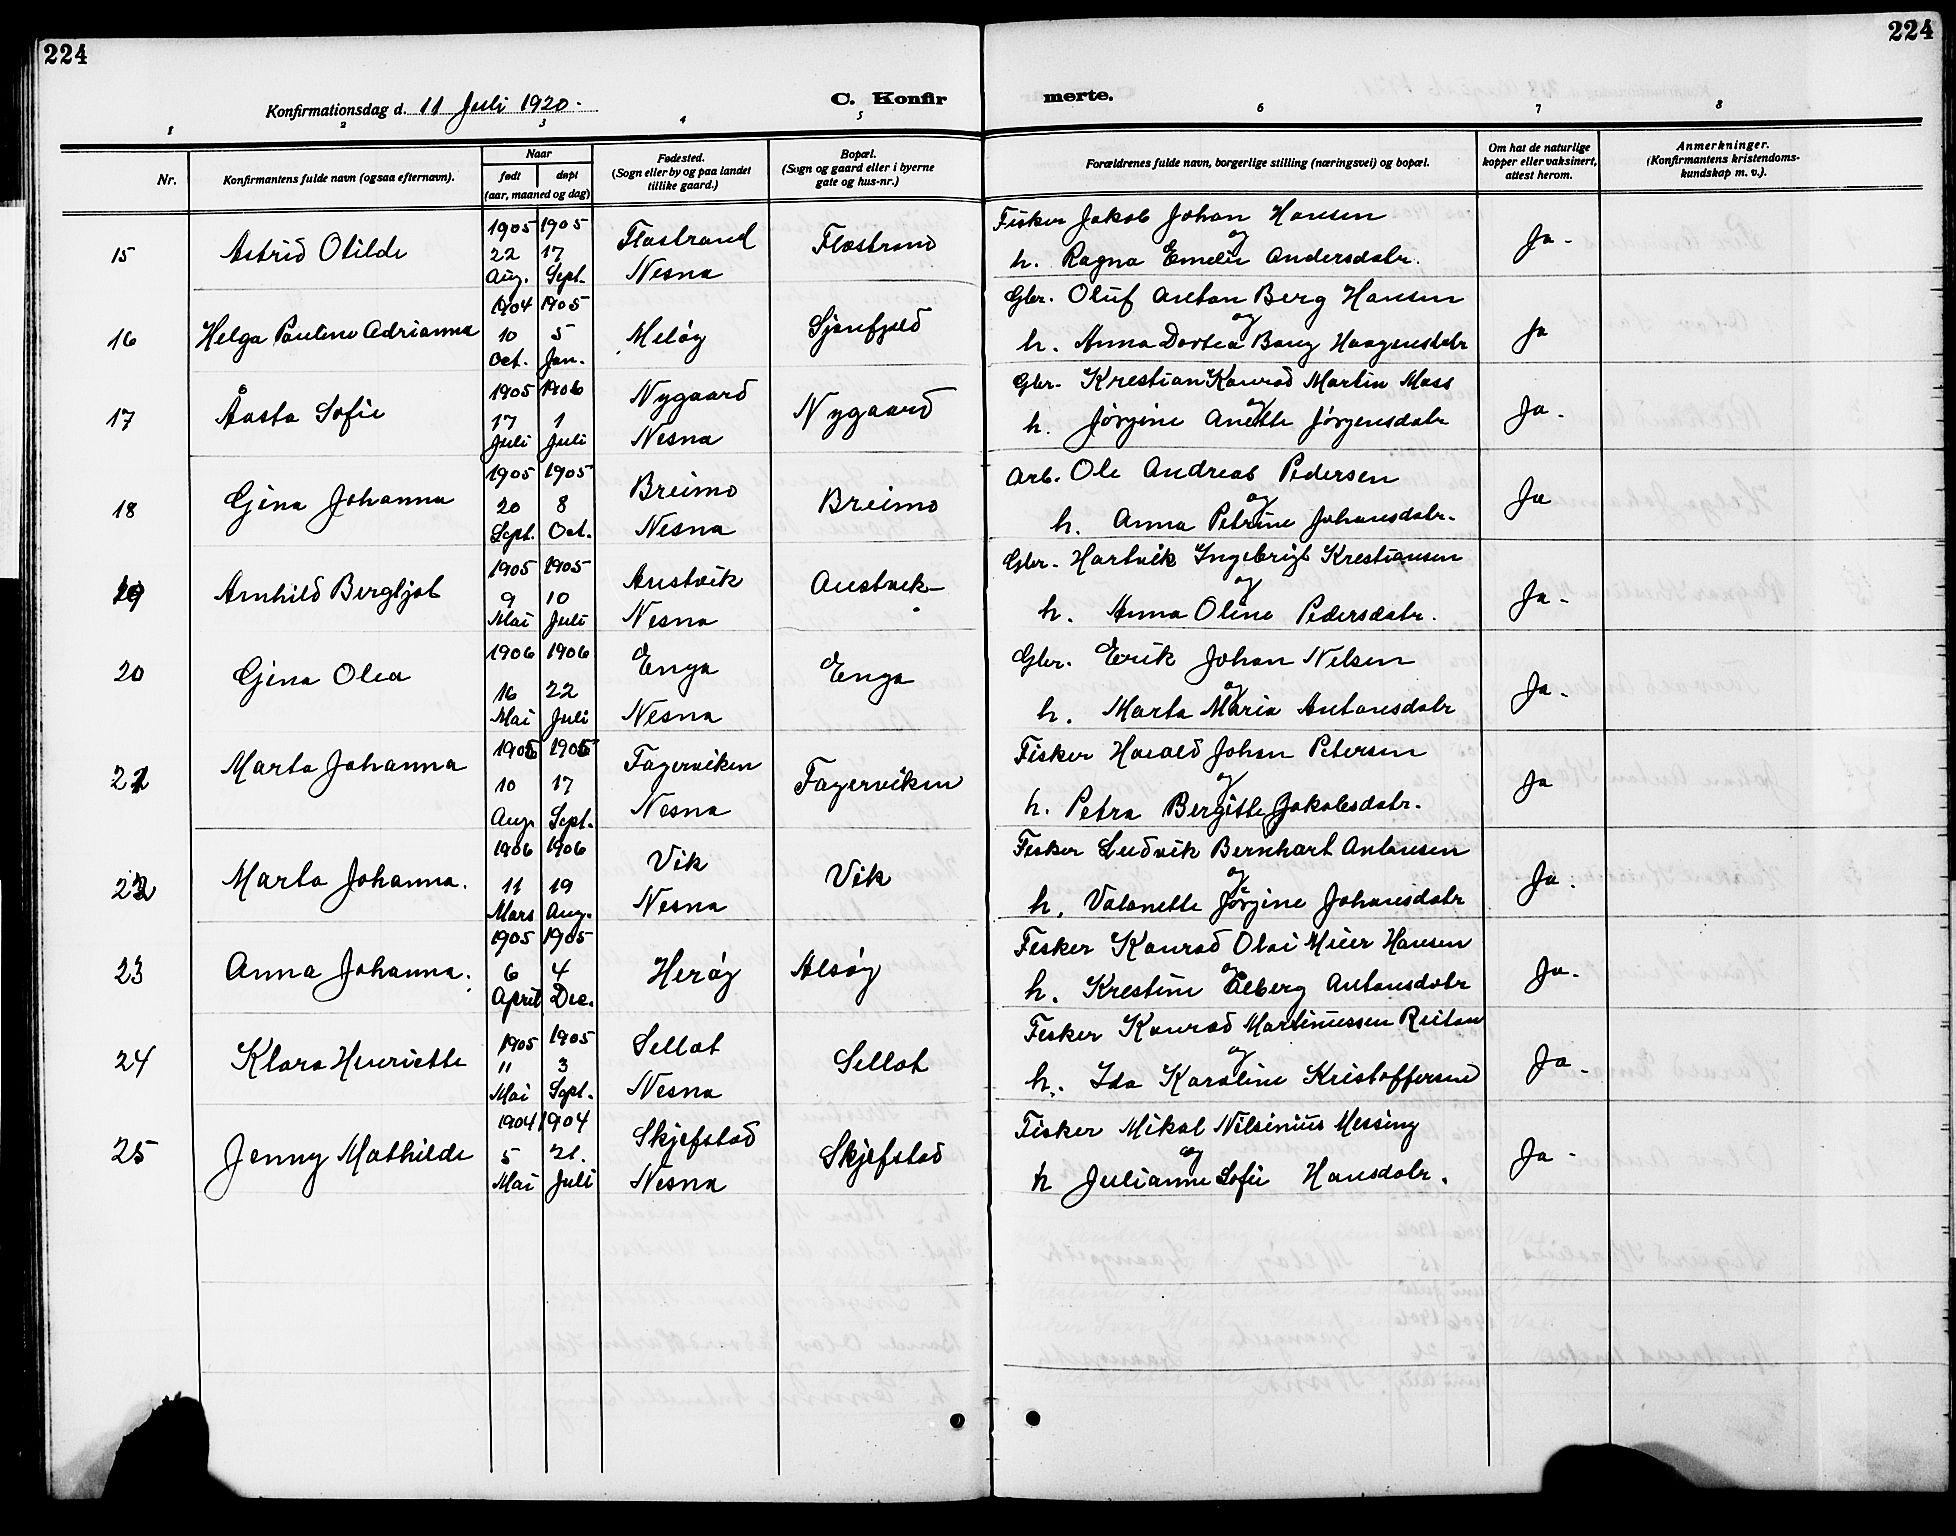 224
224
Konfirmationsdag d. 11 Juli 1920.
C. Konfir
merte.
1 2 3 4 5 6 7 8
Nr.
Konfirmantens fulde navn (ogsaa efternavn).
Naar
født døpt
(aar, maaned og dag)
Fødested.
(Sogn eller by og paa landet
tillike gaard.)
Bopæl.
(Sogn og gaard eller i byerne
gate og hus-nr.)
Forældrenes fulde navn, borgerlige stilling (næringsvei) og bopæl.
Om hat de naturlige
kopper eller vaksinert,
attest herom.
Anmerkninger.
(Konfirmantens kristendoms-
kundskap m. v.).
15 Astrid Otilde
1905 1905
22 17
Aug. Sept.
Flostrand
Nesna
Flostrand
Fisker Jakob Johan Hansen
og
h. Ragna Emelie Andersdatr.
Ja-
16 Helga Pauline Adrianna
1904 1905
10 5
Oct. Jan.
Meløy
Sjonfjeld
Gbr. Oluf Anton Berg Hansen
og
h. Anna Dortea Bang Haagensdatr
Ja
17 Åasta Sofie
1905 1906
17 1
Juli Juli
Nygaard
Nesna
Nygaard
Gbr. Krestian Konrad Martin Moss
og
h. Jørgine Anette Jørgensdatr
Ja-
18 Gina Johanna
1905 1905
20 8
Sept. Oct.
Breimo
Nesna
Breimo
Arb. Ole Andreas Pedersen
og
h. Anna Petrine Johansdatr.
Ja
19 Arnhild Bergljot
1905 1905
9 10
Mai Juli
Austvik
Nesna
Austvik
Gbr. Hartvik Ingebrigt Krestiansen
og
h. Anna Oline Pedersdatr.
Ja-
20 Gina Olea
1906 1906
16 22
Mai Juli
Enga
Nesna
Enga
Gbr. Erik Johan Nilsen
og
h. Marta Maria Antonsdatr
Ja-
21 Marta Johanna
1905 1905
10 17
Aug. Sept.
Fagerviken
Nesna
Fagerviken
Fisker Harald Johan Petersen
og
h. Petra Bergitte Jakobsdatr.
Ja
22 Marta Johanna.
1906 1906
11 19
Mars Aug.
Vik
Nesna
Vik
Fisker Ludvik Bernhart Antonsen
og
h. Valonette Jørgine Johansdatr
Ja.
23 Anna Johanna.
1905 1905
6 4
April Dec.
Herøy
Alsøy
Fisker Konrad Olai Meier Hansen
og
h. Krestine Antonsdatr
Ja-
24 Klara Henriette
1905 1905
11 3
Mai Sept.
Sellot
Nesna
Sellot
Fisker Konrad Martinussen Reitan
og
h. Ida Karoline Kristoffersen
Ja-
25 Jenny Mathilde
1904 1904
5 21.
Mai Juli
Skjefstad
Nesna
Skjefstad
Fisker Mikal Nilsinius Messing
og
h Julianne Sofie Hansdatr.
Ja-